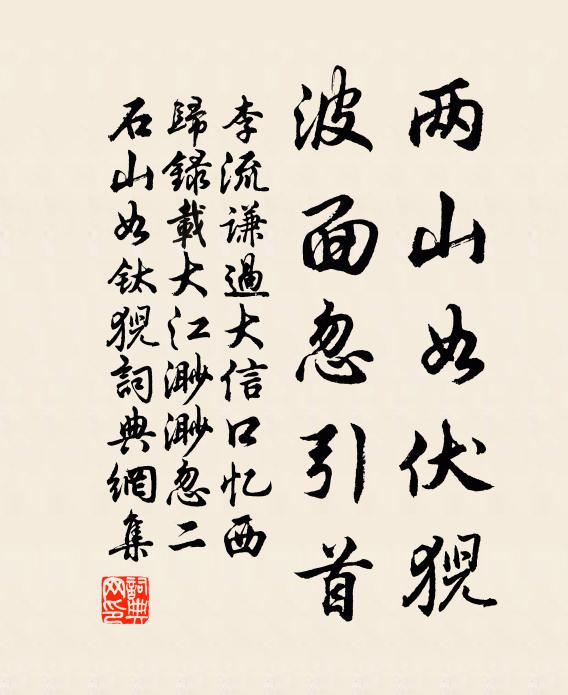 两山如伏猊
波面忽引首
李流谦過大信口忆西
歸錄載大江渺渺忽二
石山如狻猊詞典網集
詞典网印